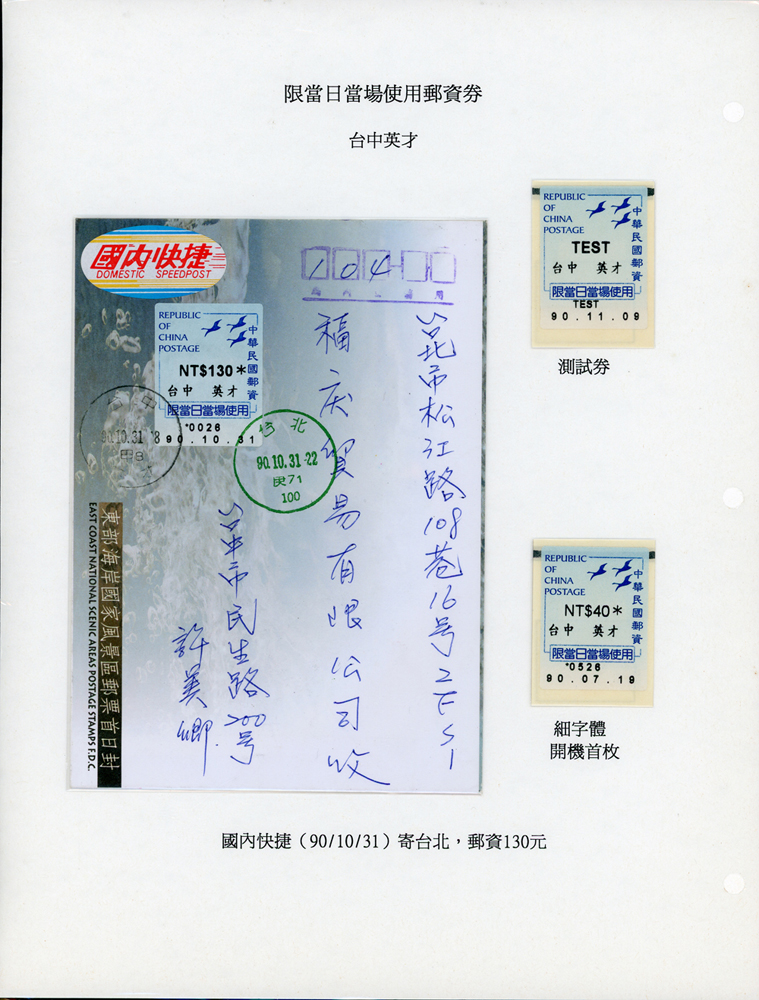 限當日當場使用郵資券
台中英才
REPUBLIC
OF
CHINA
POSTAGE
中華民國郵資
TEST
台中 英才
限當日當場使用
TEST
90.11.09
測試券
國內快捷
DOMESTIC SPEEDPOST
104
REPUBLIC
OF
CHINA
POSTAGE
中華民國郵資
NT$130*
台中 英才
限當日當場使用
*0026
90.10.31
90.10.31 18
台北
90.10.31.22
100
台北市松江路108巷16号2F之1
福庆貿易有限公司收
台中市民生路200号
許美卿
東部海岸國家風景區郵票首日封
EAST COAST NATIONAL SCENIC AREAS POSTAGE STAMPS F.D.C.
REPUBLIC
OF
CHINA
POSTAGE
中華民國郵資
NT$40*
台中 英才
限當日當場使用
*0526
90.07.19
細字體
開機首枚
國內快捷（90/10/31）寄台北，郵資130元